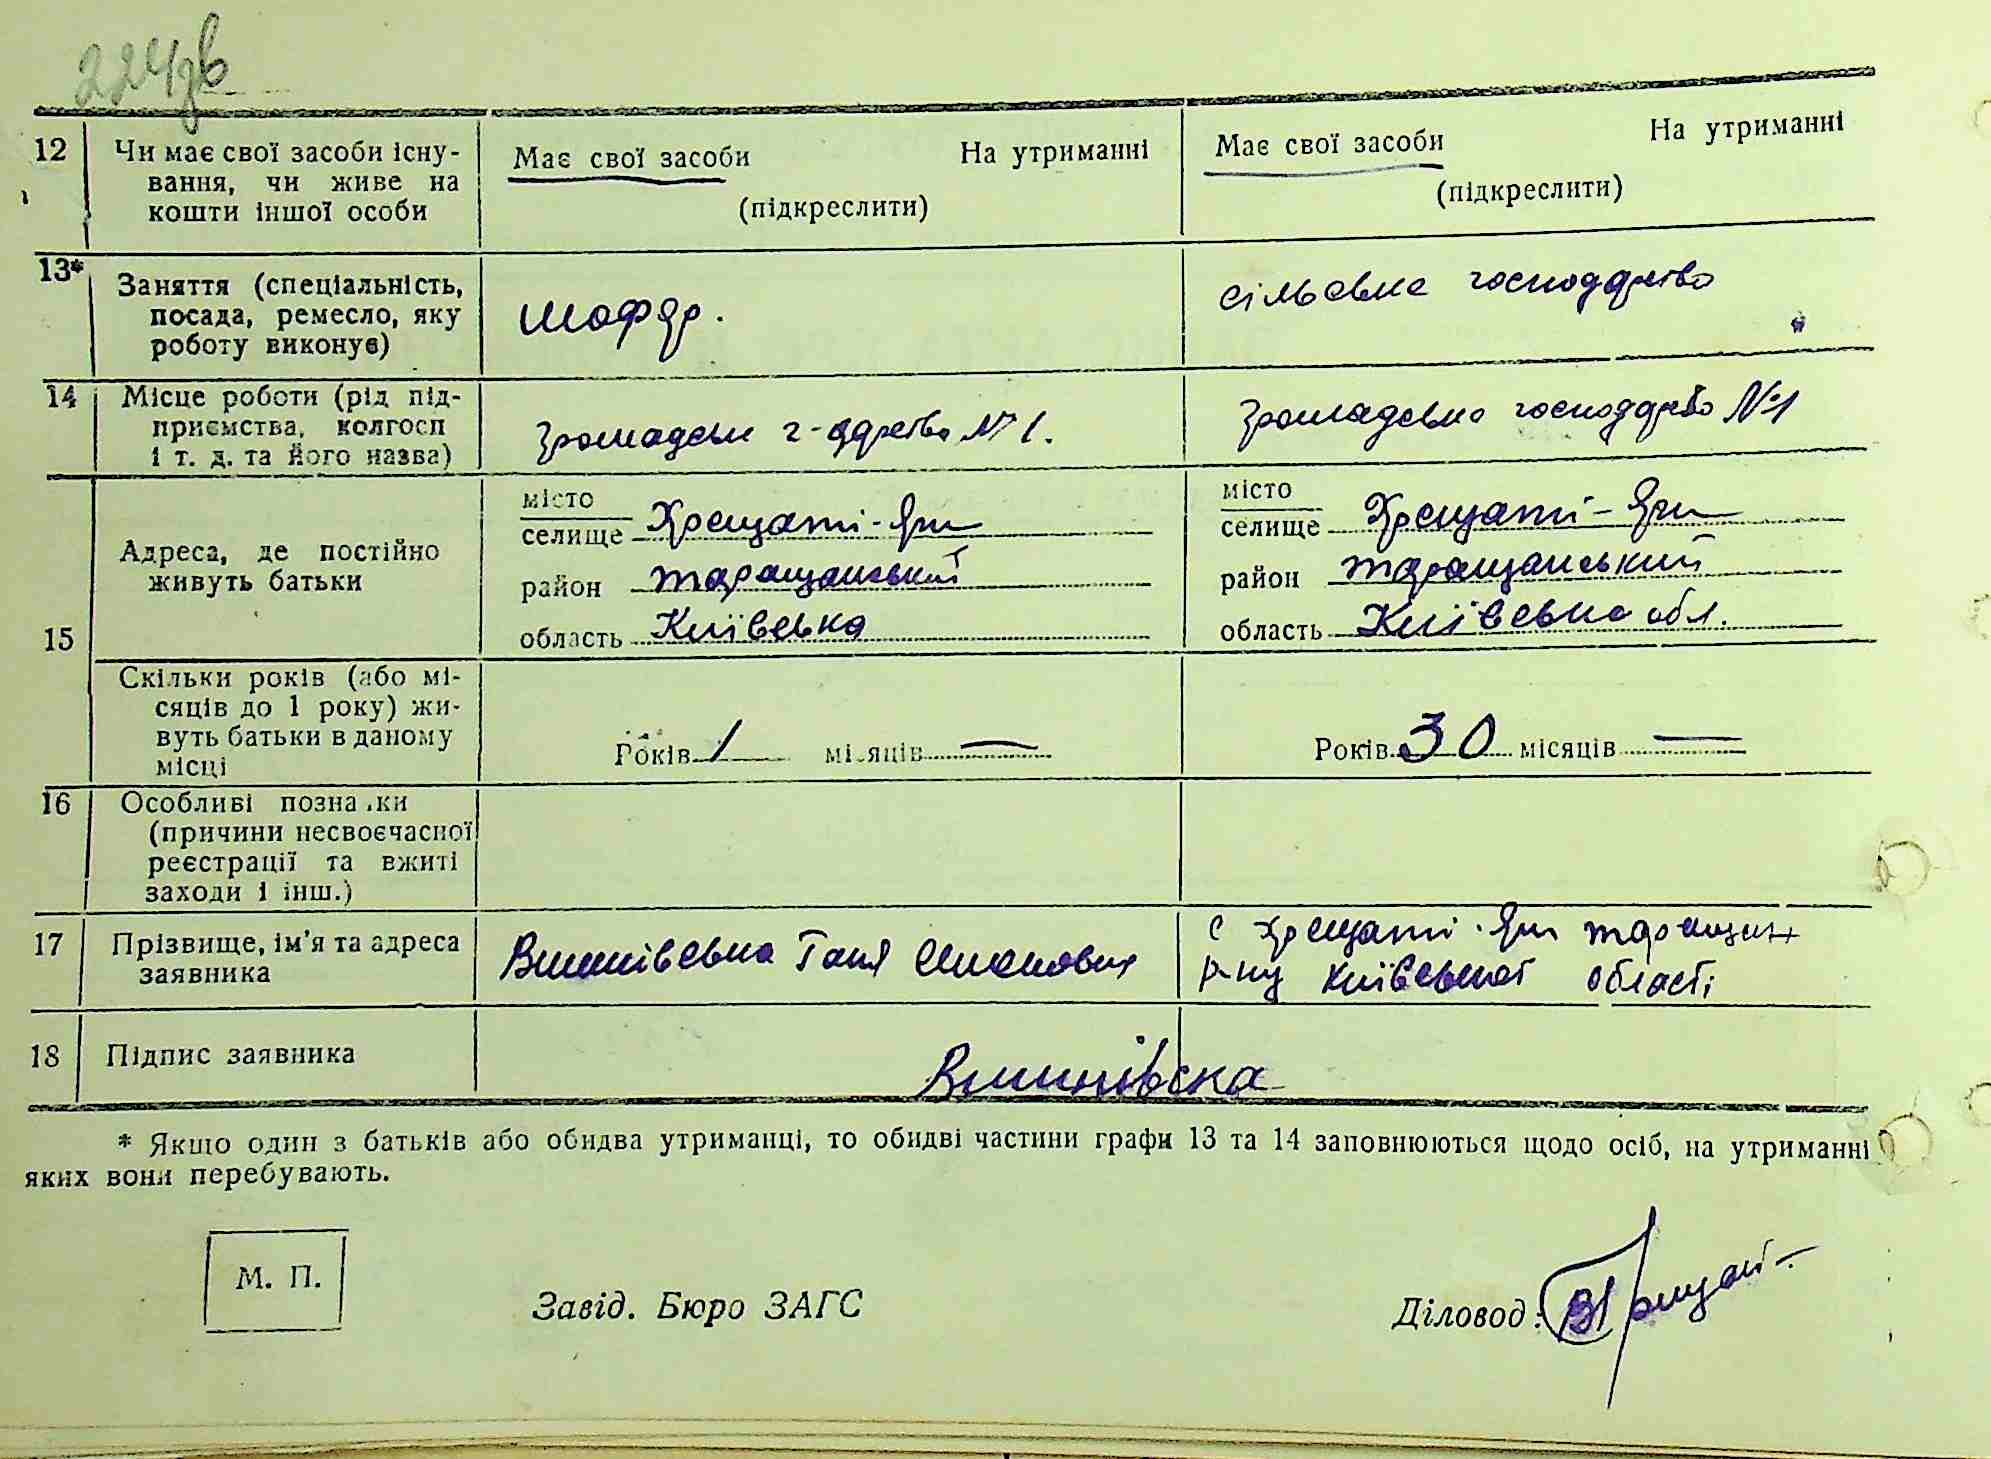 224зв
12 Чи має свої засоби існу- Має свої засоби На утриманні Має свої засоби На утриманні
вання, чи живе на (підкреслити) (підкреслити)
кошти іншої особи
13* Заняття (спеціальність, шофер. сільське господарство
посада, ремесло, яку
роботу виконує)
14 Місце роботи (рід під- громадське г-дарство № 1. громадське господарство №1
приємства, колгосп
і т. д. та його назва)
15 Адреса, де постійно місто місто
живуть батьки селище Хрещаті-Яри селище Хрещаті-Яри
район таращанський район таращанський
область Київська область Київська обл.
Скільки років (або мі- Років 1 місяців — Років 30 місяців —
сяців до 1 року) жи-
вуть батьки в даному
місці
16 Особливі позначки
(причини несвоєчасної
реєстрації та вжиті
заходи і інш.)
17 Прізвище, ім'я та адреса Вишнівська Ганя с Хрещаті-Яри таращан
заявника р-ну Київської області
18 Підпис заявника Вишнівска
* Якщо один з батьків або обидва утриманці, то обидві частини графи 13 та 14 заповнюються щодо осіб, на утриманні
яких вони перебувають.
М. П.
Завід. Бюро ЗАГС Діловод: